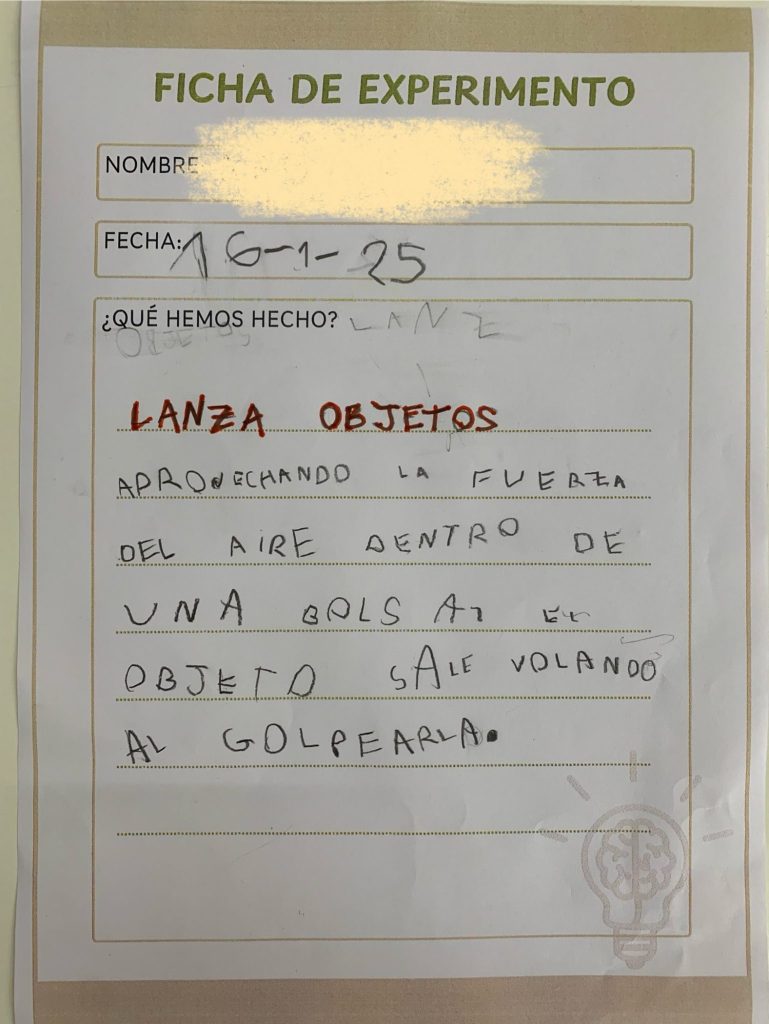 FICHA DE EXPERIMENTO
NOMBRE
FECHA: 16-1-25
¿QUÉ HEMOS HECHO? LANZ
OBJETOS
LANZA OBJETOS
APROVECHANDO LA FUERZA
DEL AIRE DENTRO DE
UNA BOLSA, EL
OBJETO SALE VOLANDO
AL GOLPEARLA.